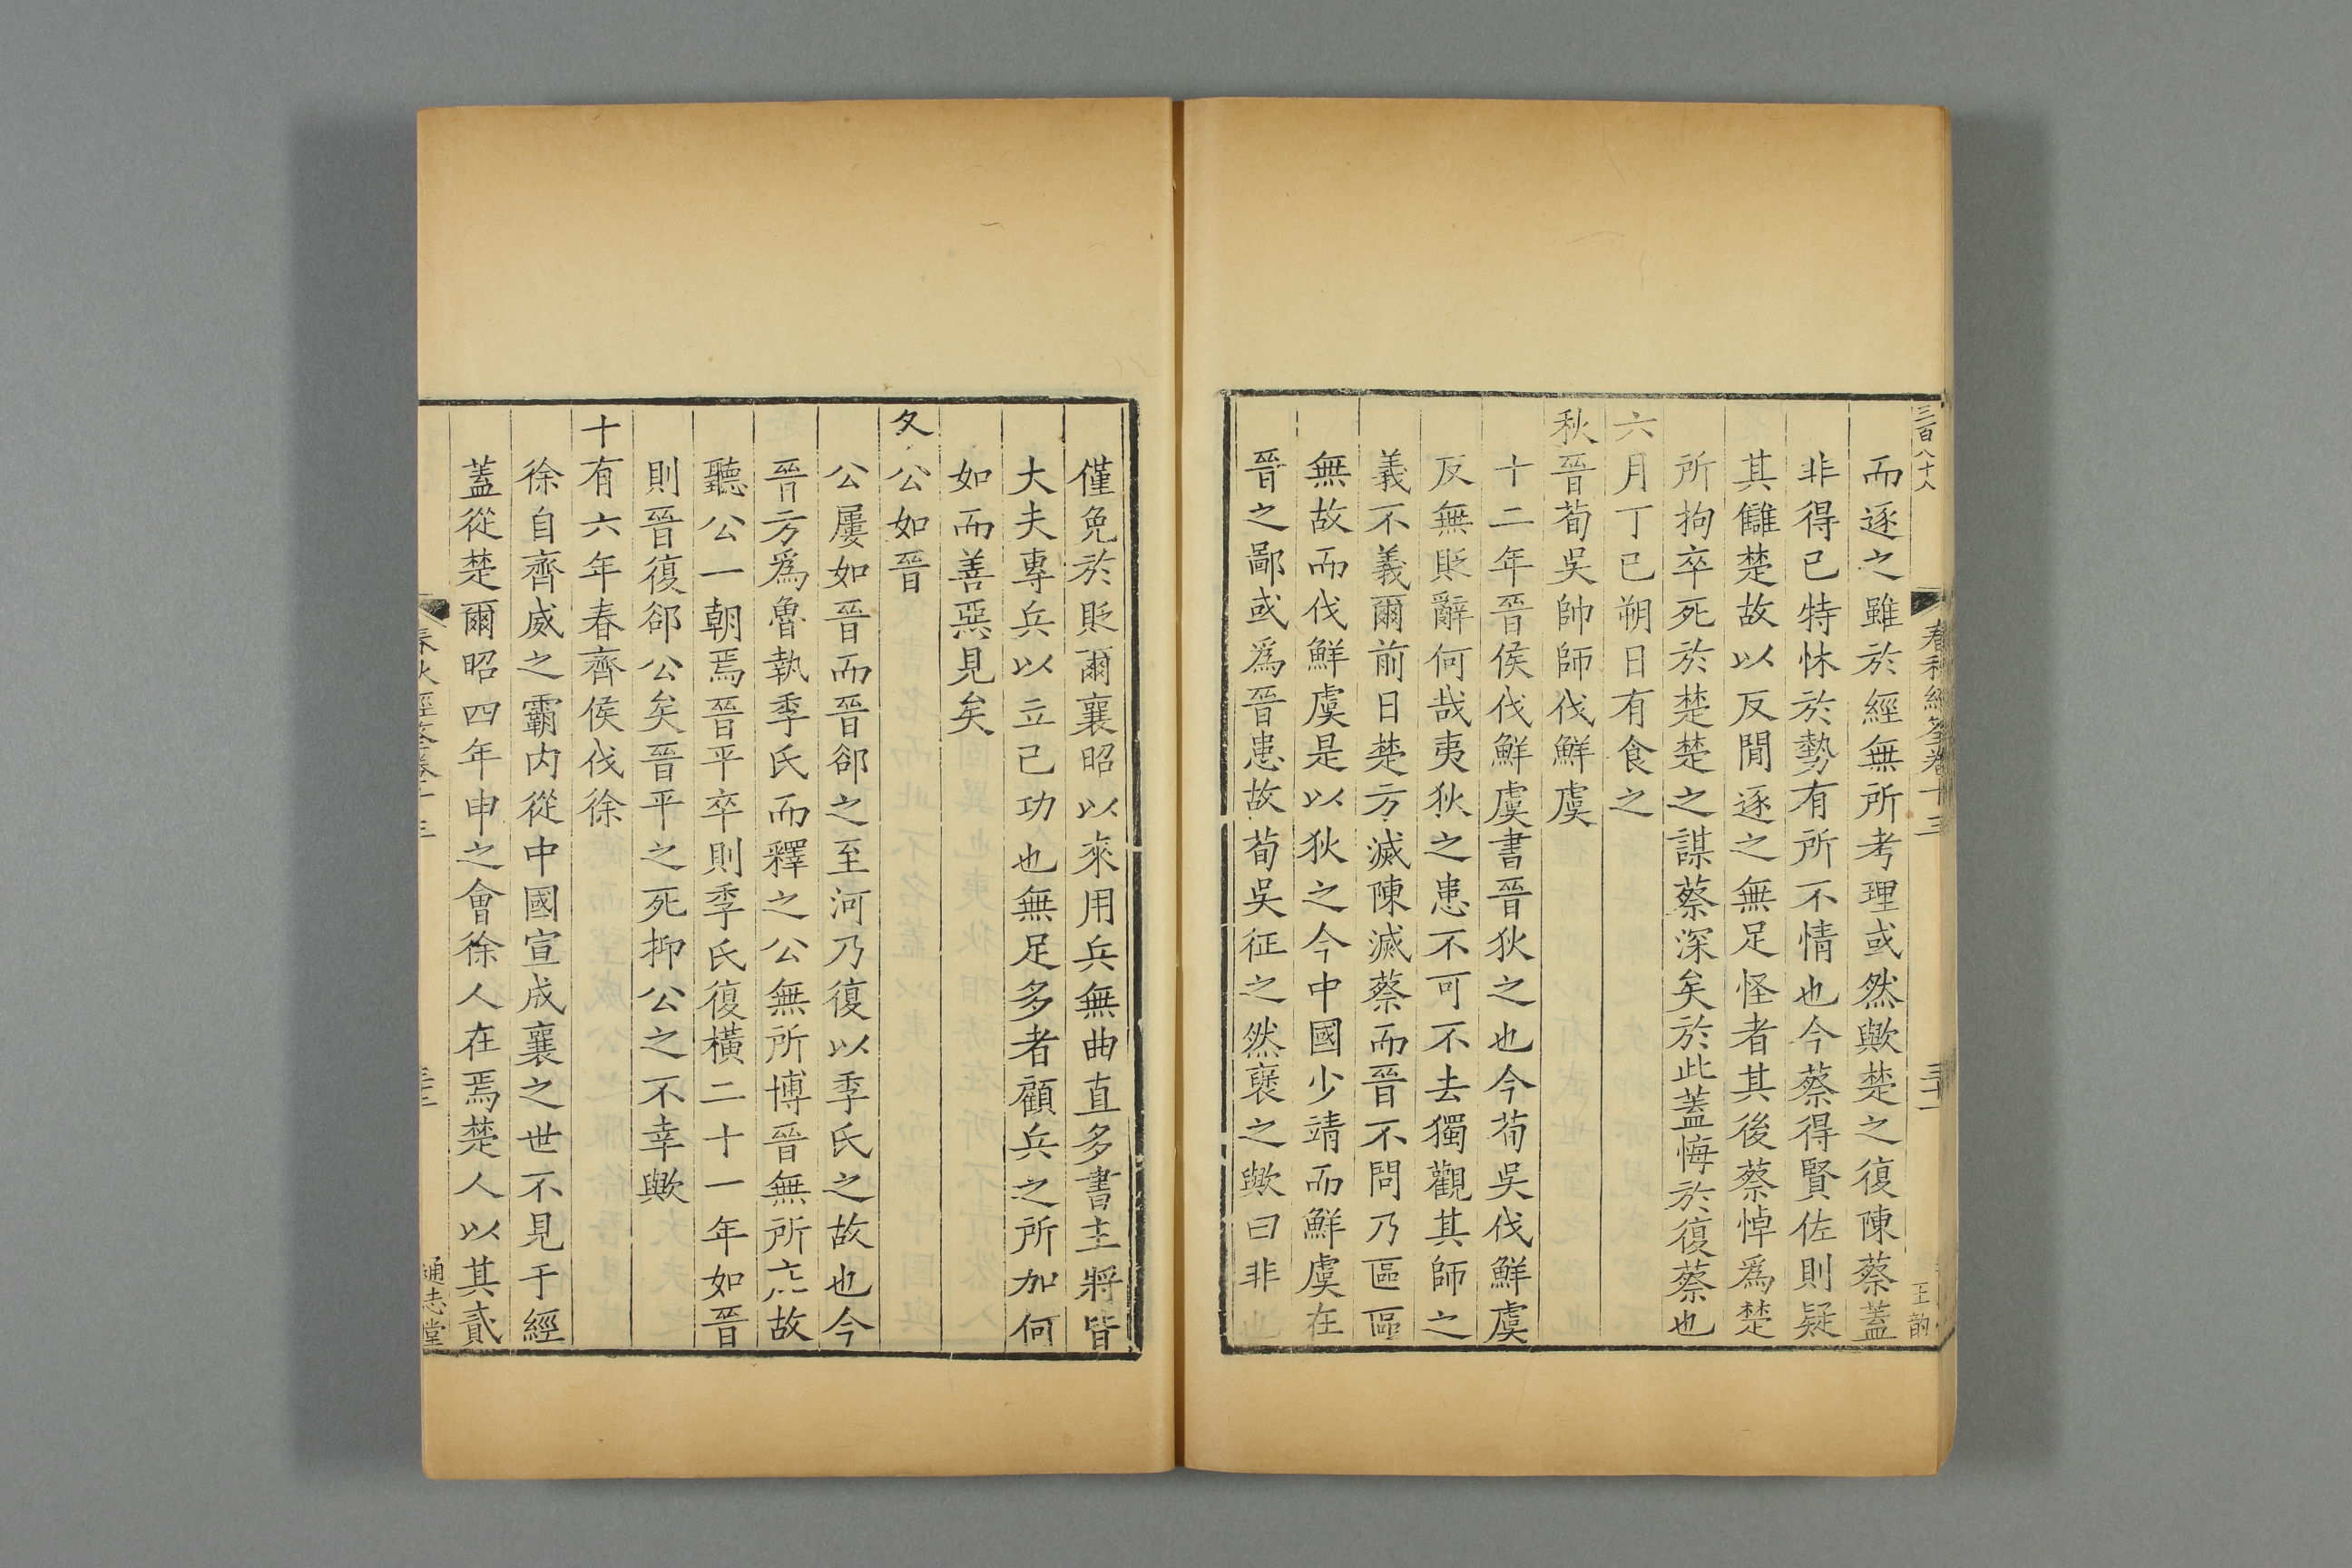 三百八十八
春秋經筌卷十三
而逐之雖於經無所考理或然歟楚之復陳蔡蓋
非得已特怵於勢有所不情也今蔡得賢佐則疑
其讎楚故以反閒逐之無足怪者其後蔡悼爲楚
所拘卒死於楚楚之謀蔡深矣於此蓋悔於復蔡也
六月丁巳朔日有食之
秋晉荀吳帥師伐鮮虞
十二年晉侯伐鮮虞書晉狄之也今荀吳伐鮮虞
反無貶辭何哉夷狄之患不可不去獨觀其師之
義不義爾前日楚方滅陳滅蔡而晉不問乃區區
無故而伐鮮虞是以狄之今中國少靖而鮮虞在
晉之鄙或爲晉患故荀吳征之然襃之歟曰非也
僅免於貶爾襄昭以來用兵無曲直多書主將皆
大夫專兵以立己功也無足多者顧兵之所加何
如而善惡見矣
冬公如晉
公屢如晉而晉郤之至河乃復以季氏之故也今
晉方爲魯執季氏而釋之公無所愽晉無所忘故
聽公一朝焉晉平卒則季氏復橫二十一年如晉
則晉復郤公矣晉平之死抑公之不幸歟
十有六年春齊侯伐徐
徐自齊威之霸内從中國宣成襄之世不見于經
蓋從楚爾昭四年申之會徐人在焉楚人以其貳
春秋經筌卷十三
通志堂